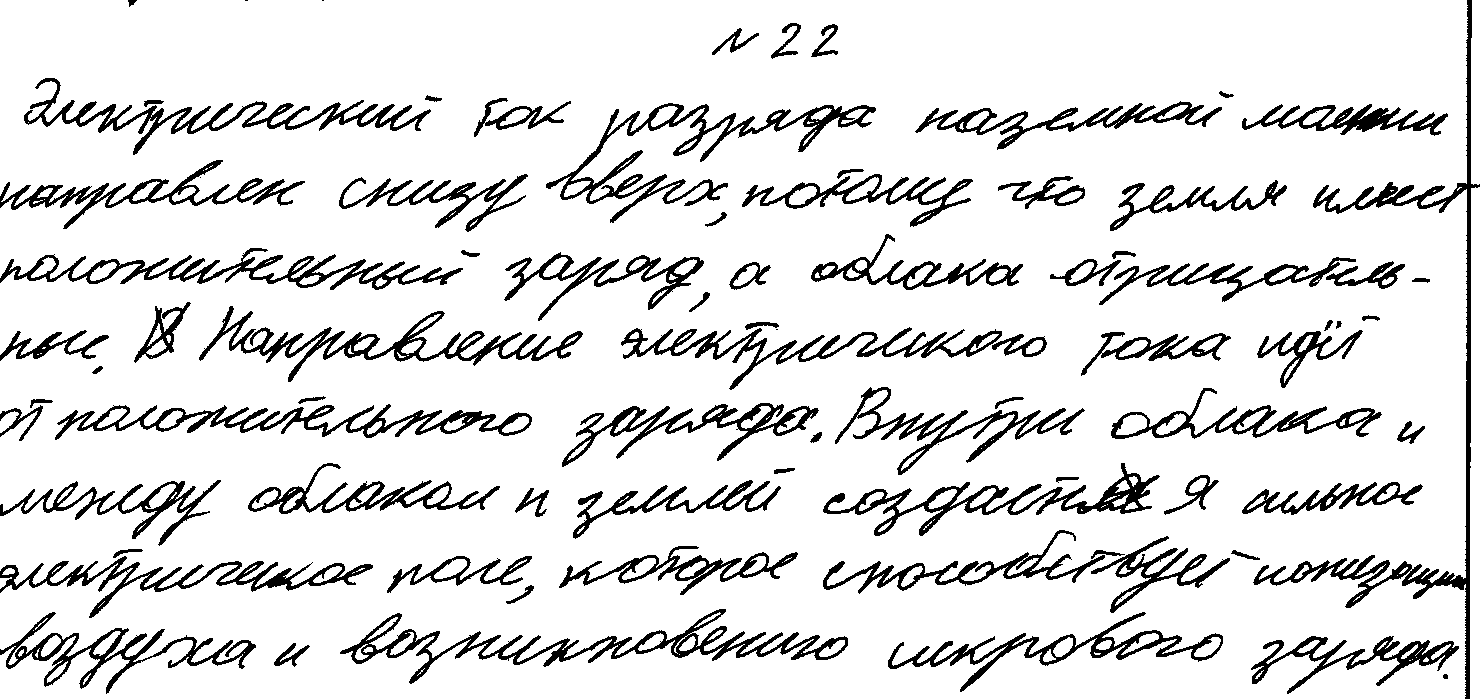 № 22
Электрический ток разряда наземной молнии
направлен снизу вверх, потому что земля имеет
положительный заряд, а облака отрицатель-
ные. Направление электрического тока идёт
от положительного заряда. Внутри облака и
между облаком и землёй создаётся сильное
электрическое поле, которое способствует ионизации
воздуха и возникновению искрового заряда.